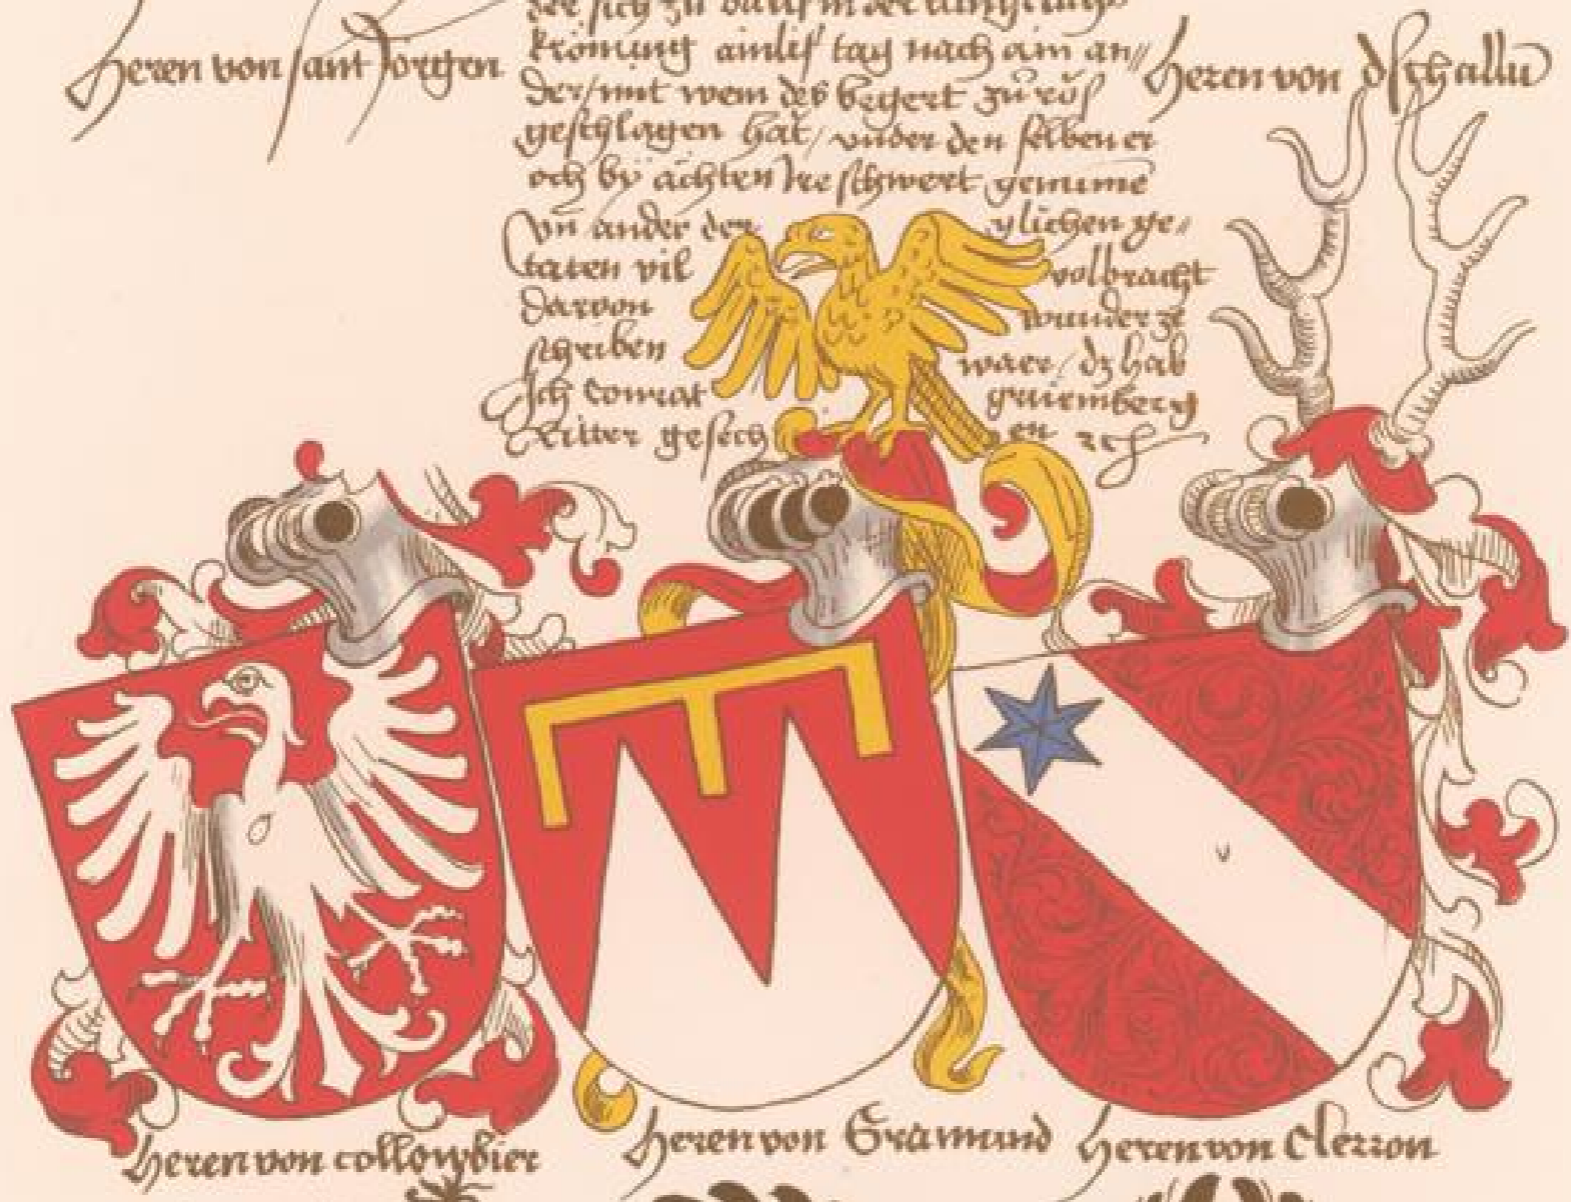 Heren von sant Jörgen
krönung ainlif tag nach ain an//
der/mit wem des begert zu
geschlagen hat/ vnder den selben er
och by ächten Ire schwert genume
Vn ander der ylichen ge//
taten vil volbracht
darvon wunder ze
schriben waer/ dz hab
Ich conrat grünemberg
Ritter gesechen
Heren von
Heren von collowbier
Heren von Gramund
Heren von Clerron